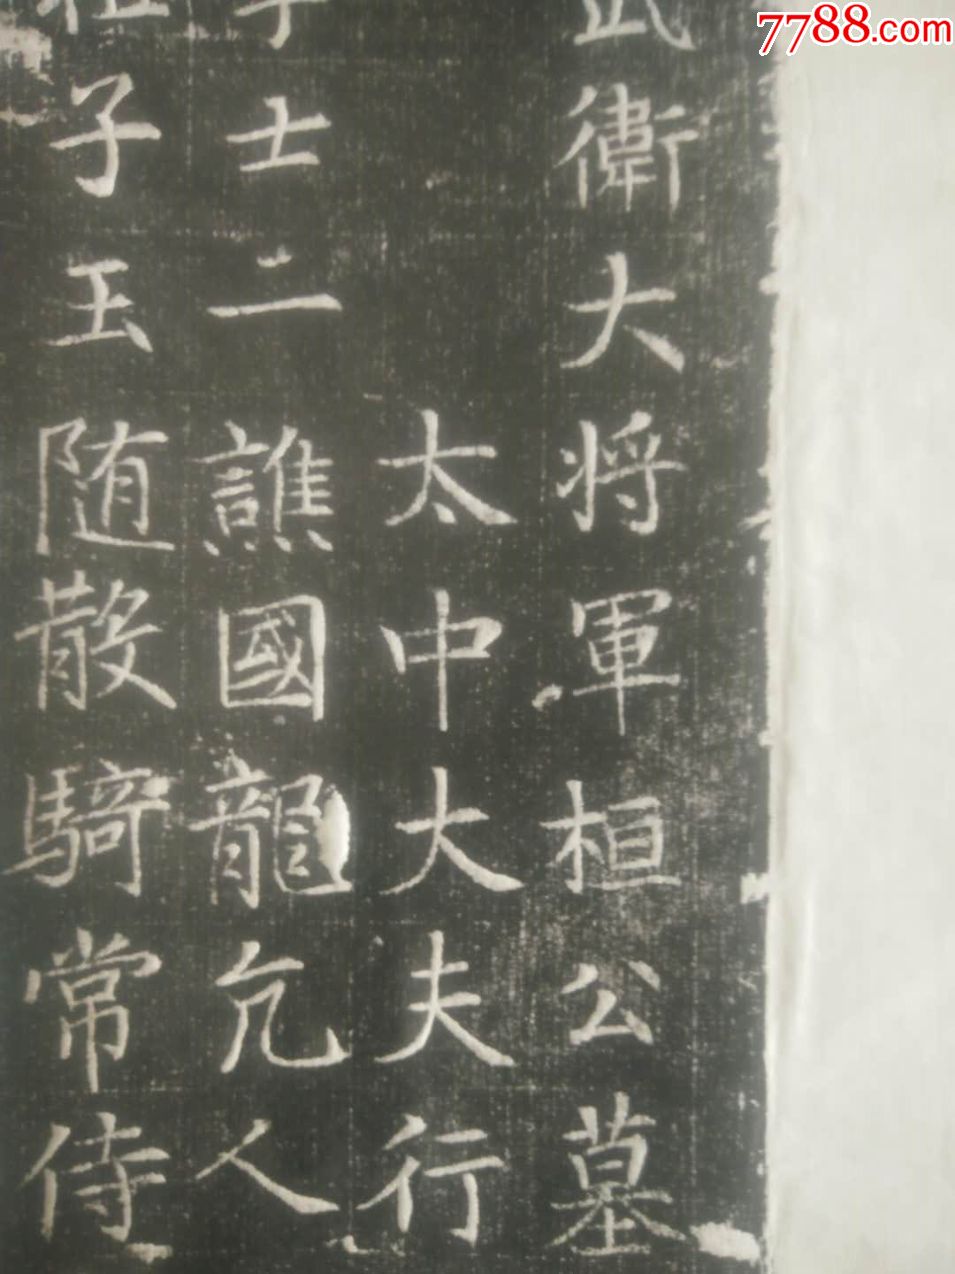 7788.com
武衛大將軍桓公墓
太中大夫行
士二譙國龍亢人
子玉随散騎常侍